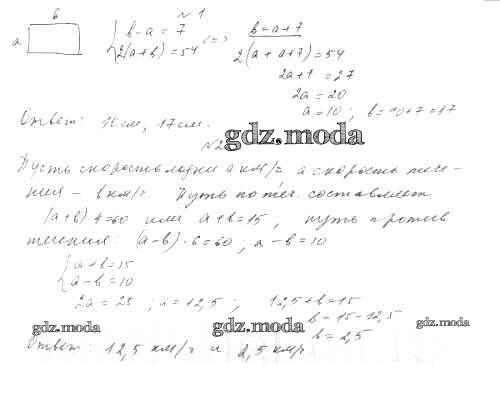 № 1
в
а
{ в - а = 7
2(а + в) = 54
<=>
в = а + 7
2(а + а + 7) = 54
2а + 7 = 27
2а = 20
а = 10 ; в = 10 + 7 = 17
Ответ: 10 см, 17 см.
№ 2
gdz.moda
Пусть скорость лодки а км/ч а скорость тече-
ния - в км/ч Путь по теч. составляет
(а + в) · 4 = 60 или а + в = 15 , путь против
течения: (а - в) · 6 = 60 ; а - в = 10
{ а + в = 15
а - в = 10
2а = 25 ; а = 12,5 ; 12,5 + в = 15
в = 15 - 12,5
в = 2,5
gdz.moda gdz.moda gdz.moda
Ответ: 12,5 км/ч и 2,5 км/ч